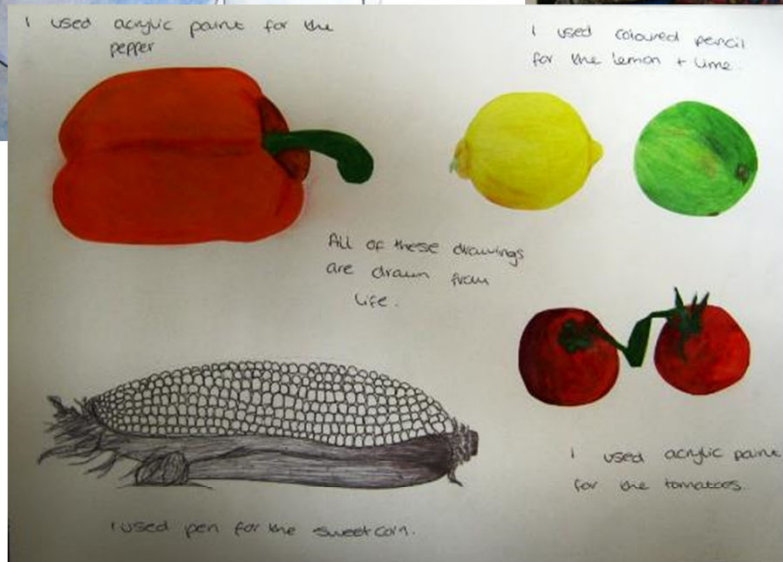 I used acrylic paint for the
pepper
I used coloured pencil
for the lemon + lime.
All of these drawings
are drawn from
life.
I used acrylic paint
for the tomatoes.
I used pen for the sweetcorn.